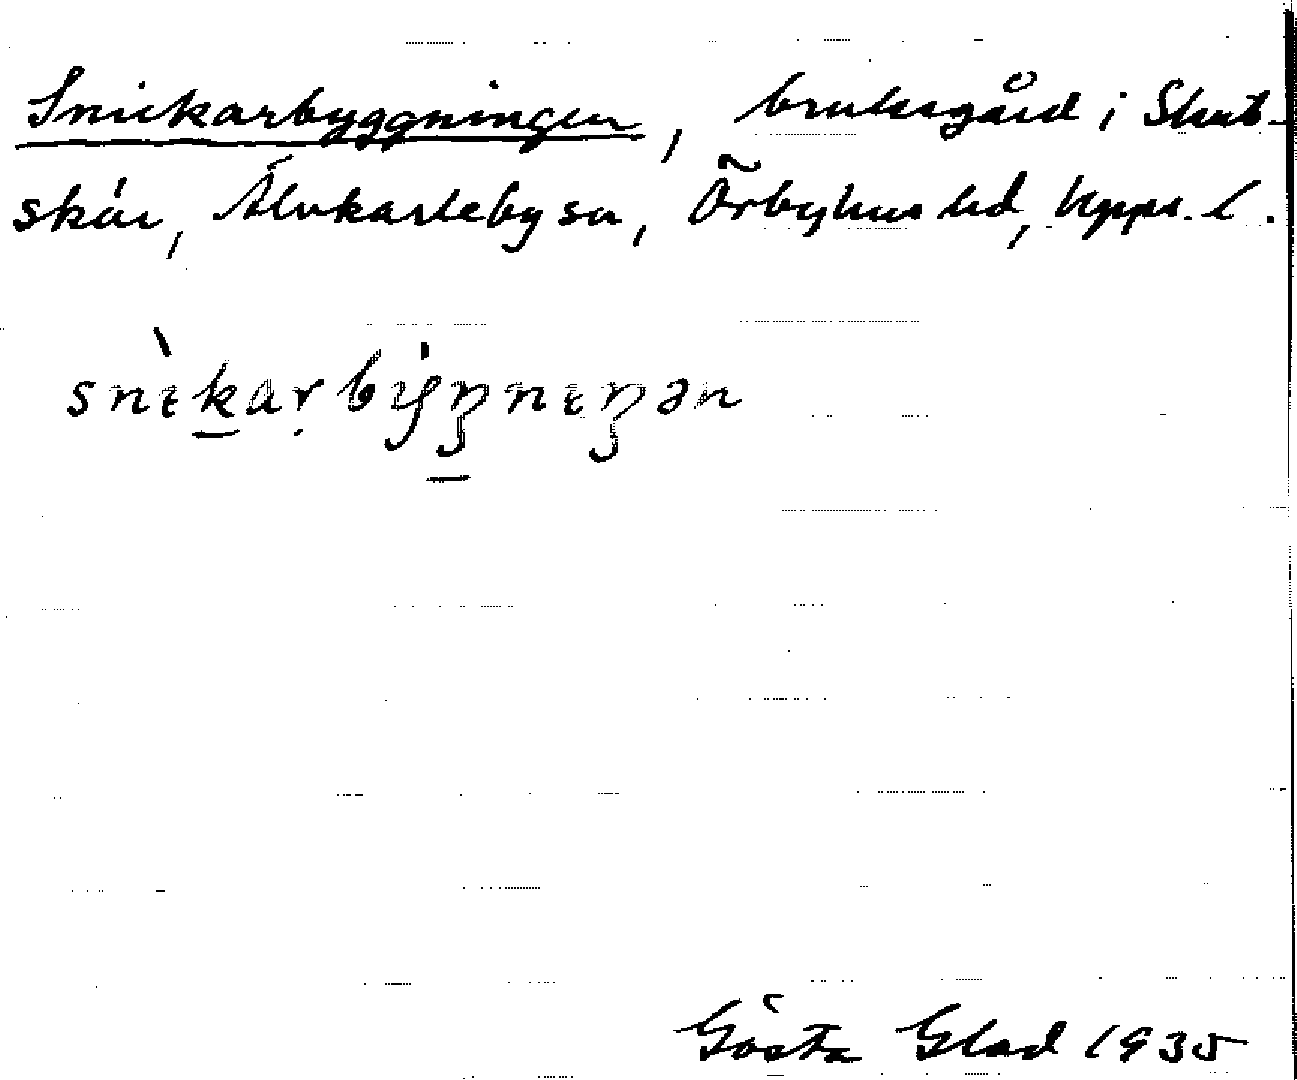 Snickarbyggningen, bruksgård i Skut-
skär, Älvkarleby sn, Örbyhus hd, Upps. l.
snìkarbyŋnıŋən
Gösta Glad 1935